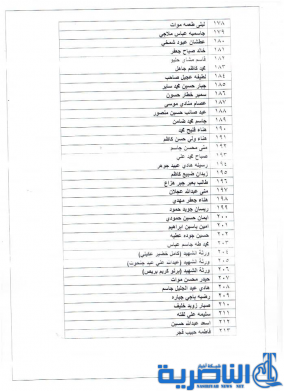 ١٧٨ ليلى طعمه موات
١٧٩ جاسميه عباس ملاجي
١٨٠ عطشان عبود شمخي
١٨١ خالد صباح جعفر
١٨٢ قاسم مشاري
١٨٣ كاظم جاهل
١٨٤ لطيفه عجيل صاحب
١٨٥ جبار حسين ساير
١٨٦ سمير خطار حسون
١٨٧ عصام منادي موسى
١٨٨ عبد صاحب حسين منصور
١٨٩ جاسم ضامن
١٩٠ هناء فليح
١٩١ هناء ولي حسن كاظم
١٩٢ منى محسن جاسم
١٩٣ صباح علي
١٩٤ رسمية هادي عبيد جوهر
١٩٥ زيدان ضبيع كاظم
١٩٦ طالب بعير جبر هزاع
١٩٧ منى عبدالله عجلان
١٩٨ هناء جعفر مهدي
١٩٩ ريسان جويد حمود
٢٠٠ ايمان حسين حمودي
٢٠١ امين ياسين ابراهيم
٢٠٢ حسين جوده عطيه
٢٠٣ طه جاسم عباس
٢٠٤ ورثة الشهيد (كامل خضير)
٢٠٥ ورثة الشهيد (عبدالله علي عبد)
٢٠٦ ورثة الشهيد (كريم)
٢٠٧ حيدر محسن موات
٢٠٨ هادي عبد الجليل جاسم
٢٠٩ رضيه ياجي جباره
٢١٠ صبار زويد خليف
٢١١ سليمه علي لفته
٢١٢ اسعد عبدالله حسين
٢١٣ فاطمه حبيب فجر
شبكة اخبار
الناصرية